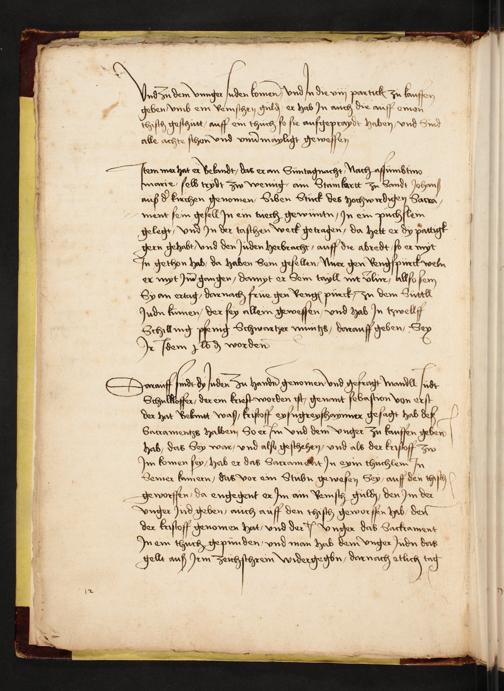 Und zu dem unnger Juden komen und In die viij partick zu kauffen
geben umb ein Reinischen guld er hab In auch die auff einen
thisch geschut auff ein thuch so sie auffgepraydt haben und sind
alle achte schon und unvermayligt gewessen
Item mer hat er bekandt das er an Sunntagnacht Nach assumbtionis
marie selb trydt zw wenig am Stambartt zu Sandt Johanns
aus der kirchen genomen Siben Stuck des hochwirdigen Sacra
ment sein gesell In ein tuech gewunten In ein puchslein
gelegt und In der taschen weck getragen da hett er dy partigkl
gern gehabt und den Juden herbracht auff die abredt so er myt
In gethon hab da haben Sein gesellen Nur gen Rengspurck weln
er myt In ganngen damyt er Sein tayll mit allso sein
Sy an ertag darnach frue gen Rengspurck zu dem
Judn kumen der sey allein gewessen und hab In tzwelff
Schilling pfenig Schwartzer muntz darauff geben Sey
Ir Idem worden
Darauff sindt dy Juden zu handen genomen und gefragt Mandll Judt
Schulkloffer der ein krist worden ist genant Sebastion von erst
der hat bekent was kristoff eysengreyshammer gesagt hab des
Sacraments halben So er In und dem unger zu kauffen geben
hab das Sey war und also geschehen und als der kristoff zw
Im komen sey hab er das Sacrament In eym thuchlein In
Seiner kamern das vor ein Stubn gewesen Sey auff den thisch
geworffen da engegent er Im ain Reinisch guldn den Im der
unger Jud geben auch auff den thisch geworffen hab den
der kristoff genomen hat und der unger das Sackrament
In ein thuch gepunden und man hab dem unger Judn das
gelt auß Irm widergegebn darnach etlich tag
12